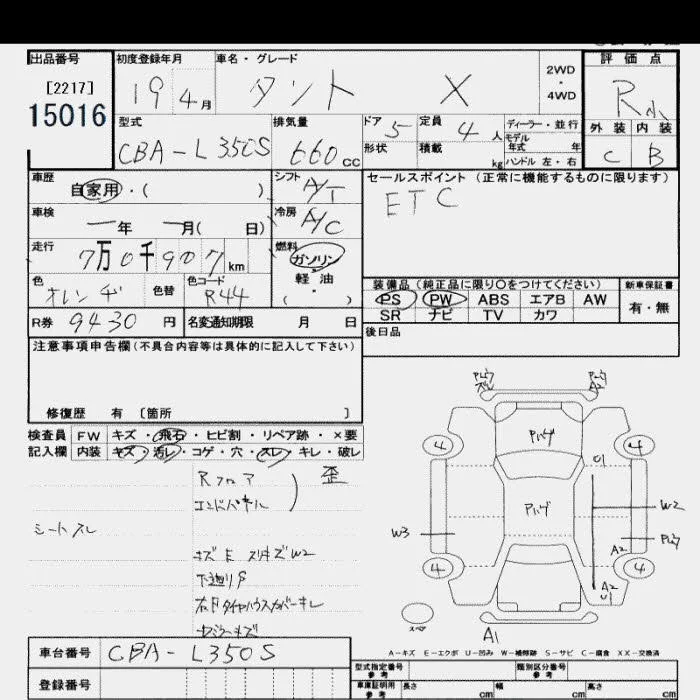 出品番号
[2217]
15016
初度登録年月
19 4月
車名・グレード
タント X
2WD
・
4WD
評価点
R
外装 内装
C B
型式
CBA-L350S
排気量
660cc
ドア 5
形状
定員 4人
積載 kg
ディーラー・並行
モデル年式 年
ハンドル 左・右
車歴
自家用・( )
シフト A/T
セールスポイント (正常に機能するものに限ります)
ETC
車検
一年 一月( 日)
冷房 A/C
走行
7万0千907km
燃料
ガソリン
軽油
( ・ )
色
オレンヂ
色替
色コード
R44
装備品 (純正品に限り○をつけてください)
PS PW ABS エアB AW
SR ナビ TV カワ
新車保証書
有・無
R券 9430円
名変通知期限 月 日
後日品
注意事項申告欄 (不具合内容等は具体的に記入して下さい)
修復歴 有 〔箇所 〕
検査員 FW キズ・飛石・ヒビ割・リペア跡・×要
記入欄 内装 キズ・汚レ・コゲ・穴・スレ・キレ・破レ
Rフロア
エンドパネル
歪
シートスレ
キズ E スリキズ W2
下廻りS
右Fタイヤハウスカバーキレ
4
4
4
4
U1
W2
W3
A2
A2
U1
A1
スペア
A-キズ E-エクボ U-凹み W-補修跡 S-サビ C-腐食 XX-交換済
車台番号 CBA-L350S
登録番号
型式指定番号
参考
類別区分番号
参考
車庫証明用
参考
長さ cm
幅 cm
高さ cm